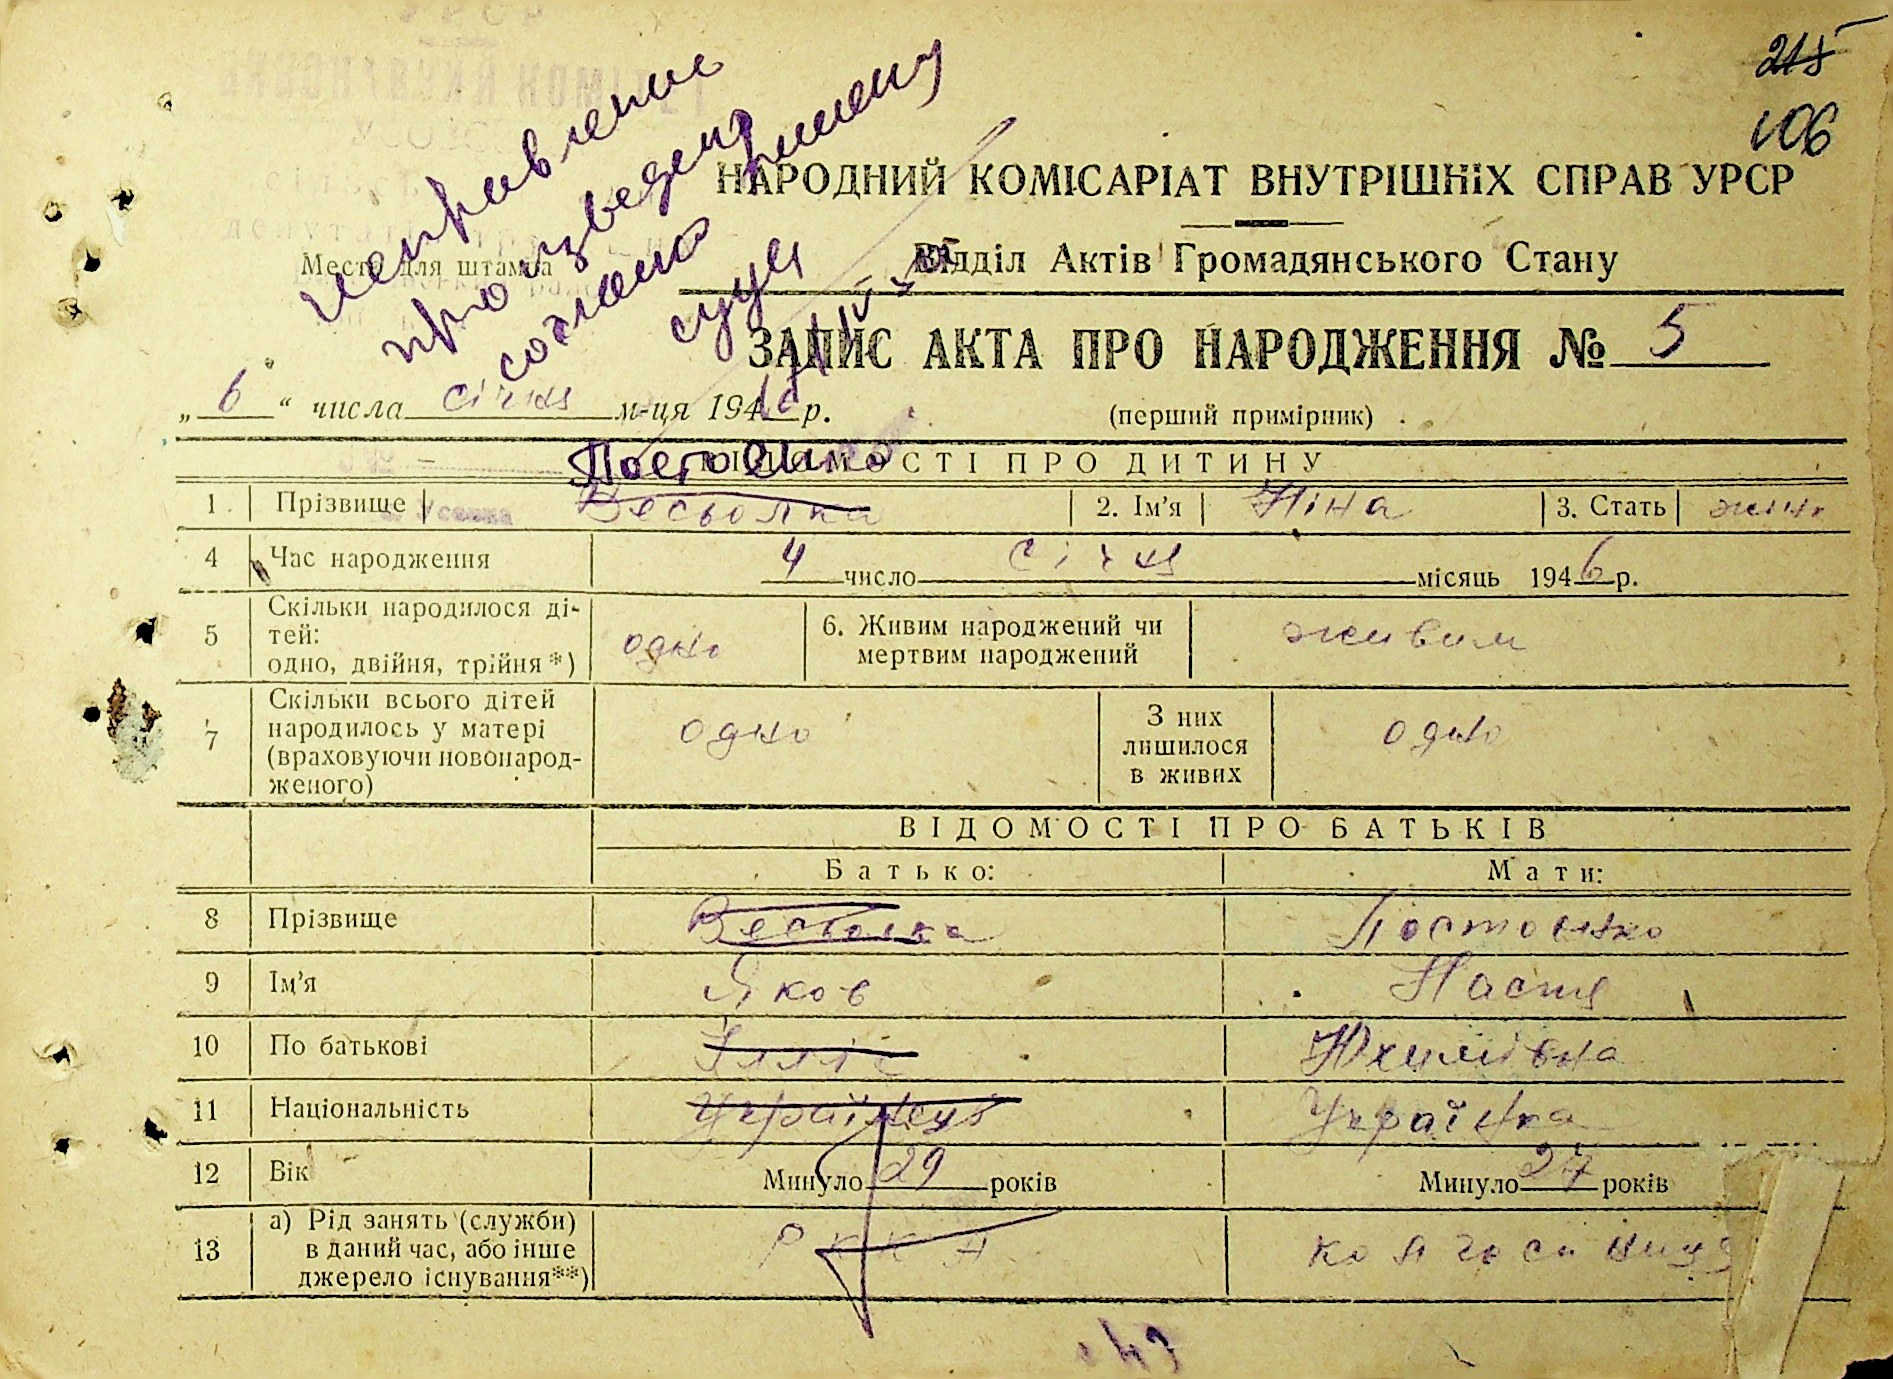 215
106
исправление
произведено
согласно решению
суда
НАРОДНИЙ КОМІСАРІАТ ВНУТРІШНІХ СПРАВ УРСР
Відділ Актів Громадянського Стану
Место для штампа
ЗАПИС АКТА ПРО НАРОДЖЕННЯ № 5
„ 6 “ числа січня м-ця 1946 р.
(перший примірник)
ВІДОМОСТІ ПРО ДИТИНУ
Постоєнко
1. Прізвище Весьолка 2. Ім'я Ніна 3. Стать жин.
4 Час народження 4 число січня місяць 1946 р.
5 Скільки народилося ді-
тей:
одно, двійня, трійня*) одно 6. Живим народжений чи
мертвим народжений живим
7 Скільки всього дітей
народилось у матері
(враховуючи новонарод-
женого) одно З них
лишилося
в живих одно
ВІДОМОСТІ ПРО БАТЬКІВ
Батько: Мати:
8 Прізвище Весьолка Постоєнко
9 Ім'я Яков Настя
10 По батькові Ілліч Юхимівна
11 Національність Українець Українка
12 Вік Минуло 29 років Минуло 27 років
13 а) Рід занять (служби)
в даний час, або інше
джерело існування**) РККА колгоспниця